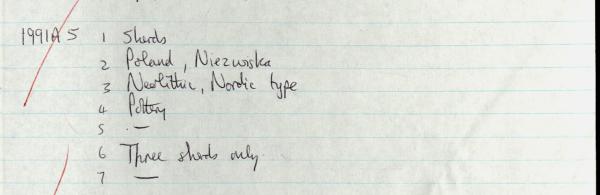 1991A5 1 Sherds
2 Poland, Niezwoska
3 Neolithic, Nordic type
4 Pottery
5 . —
6 Three sherds only.
7 —